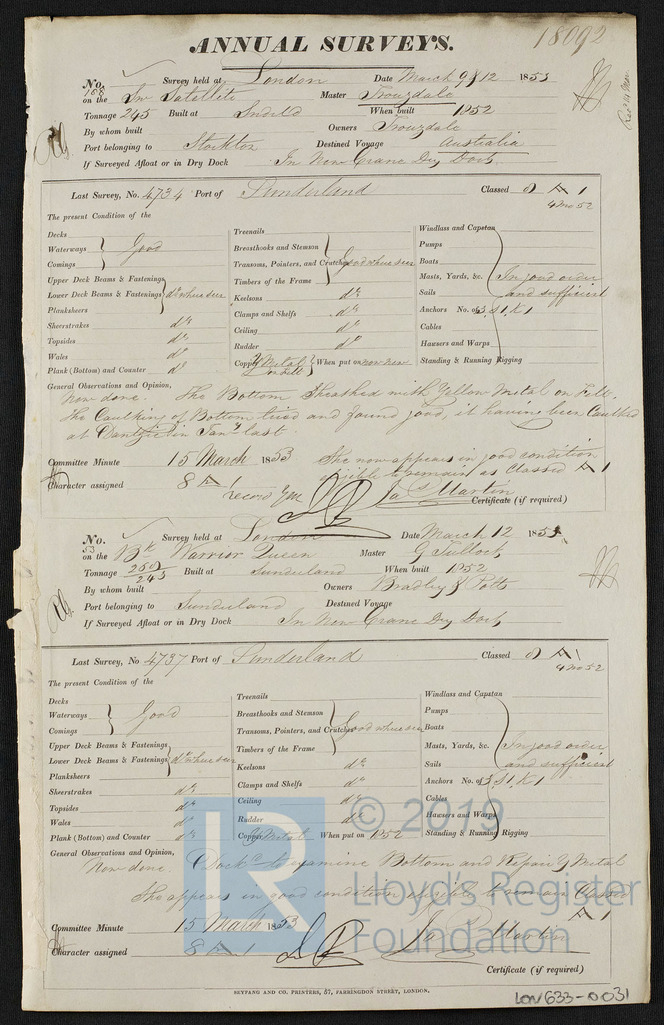 18092
ANNUAL SURVEYS.
No. 168 Survey held at London Date March 9 & 12 1853
on the Sr Satellite Master Trouzdale
Tonnage 245 Built at Sndrld When built 1852
By whom built Owners Trouzdale
Port belonging to Stockton Destined Voyage Australia
If Surveyed Afloat or in Dry Dock In New Crane Dry Dock
Last Survey, No. 4734 Port of Sunderland Classed 8 A 1
4 mo 52
The present Condition of the
Decks
Waterways Good
Comings
Upper Deck Beams & Fastenings
Lower Deck Beams & Fastenings do where seen
Planksheers
Sheerstrakes do
Topsides do
Wales do
Plank (Bottom) and Counter do
Treenails
Breasthooks and Stemson
Transoms, Pointers, and Crutches Good where seen
Timbers of the Frame
Keelsons do
Clamps and Shelfs do
Ceiling do
Rudder do
Copper Y Metal When put on now new
Windlass and Capstan
Pumps
Boats
Masts, Yards, &c. In good order
Sails and sufficient
Anchors No. of 3 S 1 K 1
Cables
Hausers and Warps
Standing & Running Rigging
General Observations and Opinion,
Now done. The Bottom Sheathed with Yellow Metal on Felt.
The Caulking of Bottom tried and found good, it having been Caulked
at Dantzic in Jany last
She now appears in good condition
eligible to remain as Classed A 1
Committee Minute 15 March 1853
Character assigned 8 A 1
record YM
Jas Martin
Certificate (if required)
No. 53 Survey held at London Date March 12 1853
on the Bk Warrior Queen Master G Tulloch
Tonnage 250/245 Built at Sunderland When built 1852
By whom built Owners Bradley & Potts
Port belonging to Sunderland Destined Voyage
If Surveyed Afloat or in Dry Dock In New Crane Dry Dock
Last Survey, No 4737 Port of Sunderland Classed 8 A 1
4 mo 52
The present Condition of the
Decks
Waterways Good
Comings
Upper Deck Beams & Fastenings
Lower Deck Beams & Fastenings do where seen
Planksheers
Sheerstrakes do
Topsides do
Wales do
Plank (Bottom) and Counter do
Treenails
Breasthooks and Stemson
Transoms, Pointers, and Crutches Good where seen
Timbers of the Frame
Keelsons do
Clamps and Shelfs do
Ceiling do
Rudder do
Copper Y Metal When put on 1852
Windlass and Capstan
Pumps
Boats
Masts, Yards, &c. In good order
Sails and sufficient
Anchors No. of 3 S 1 K 1
Cables
Hausers and Warps
Standing & Running Rigging
General Observations and Opinion,
Now done. Dockd to examine Bottom and Repair Y Metal
She appears in good condition eligible to remain Classed
A 1
Committee Minute 15 March 1853
Character assigned 8 A 1
Jas Martin
Certificate (if required)
SEYFANG AND CO. PRINTERS, 57, FARRINGDON STREET, LONDON.
LON633-0031
LR
© 2019
Lloyd's Register
Foundation